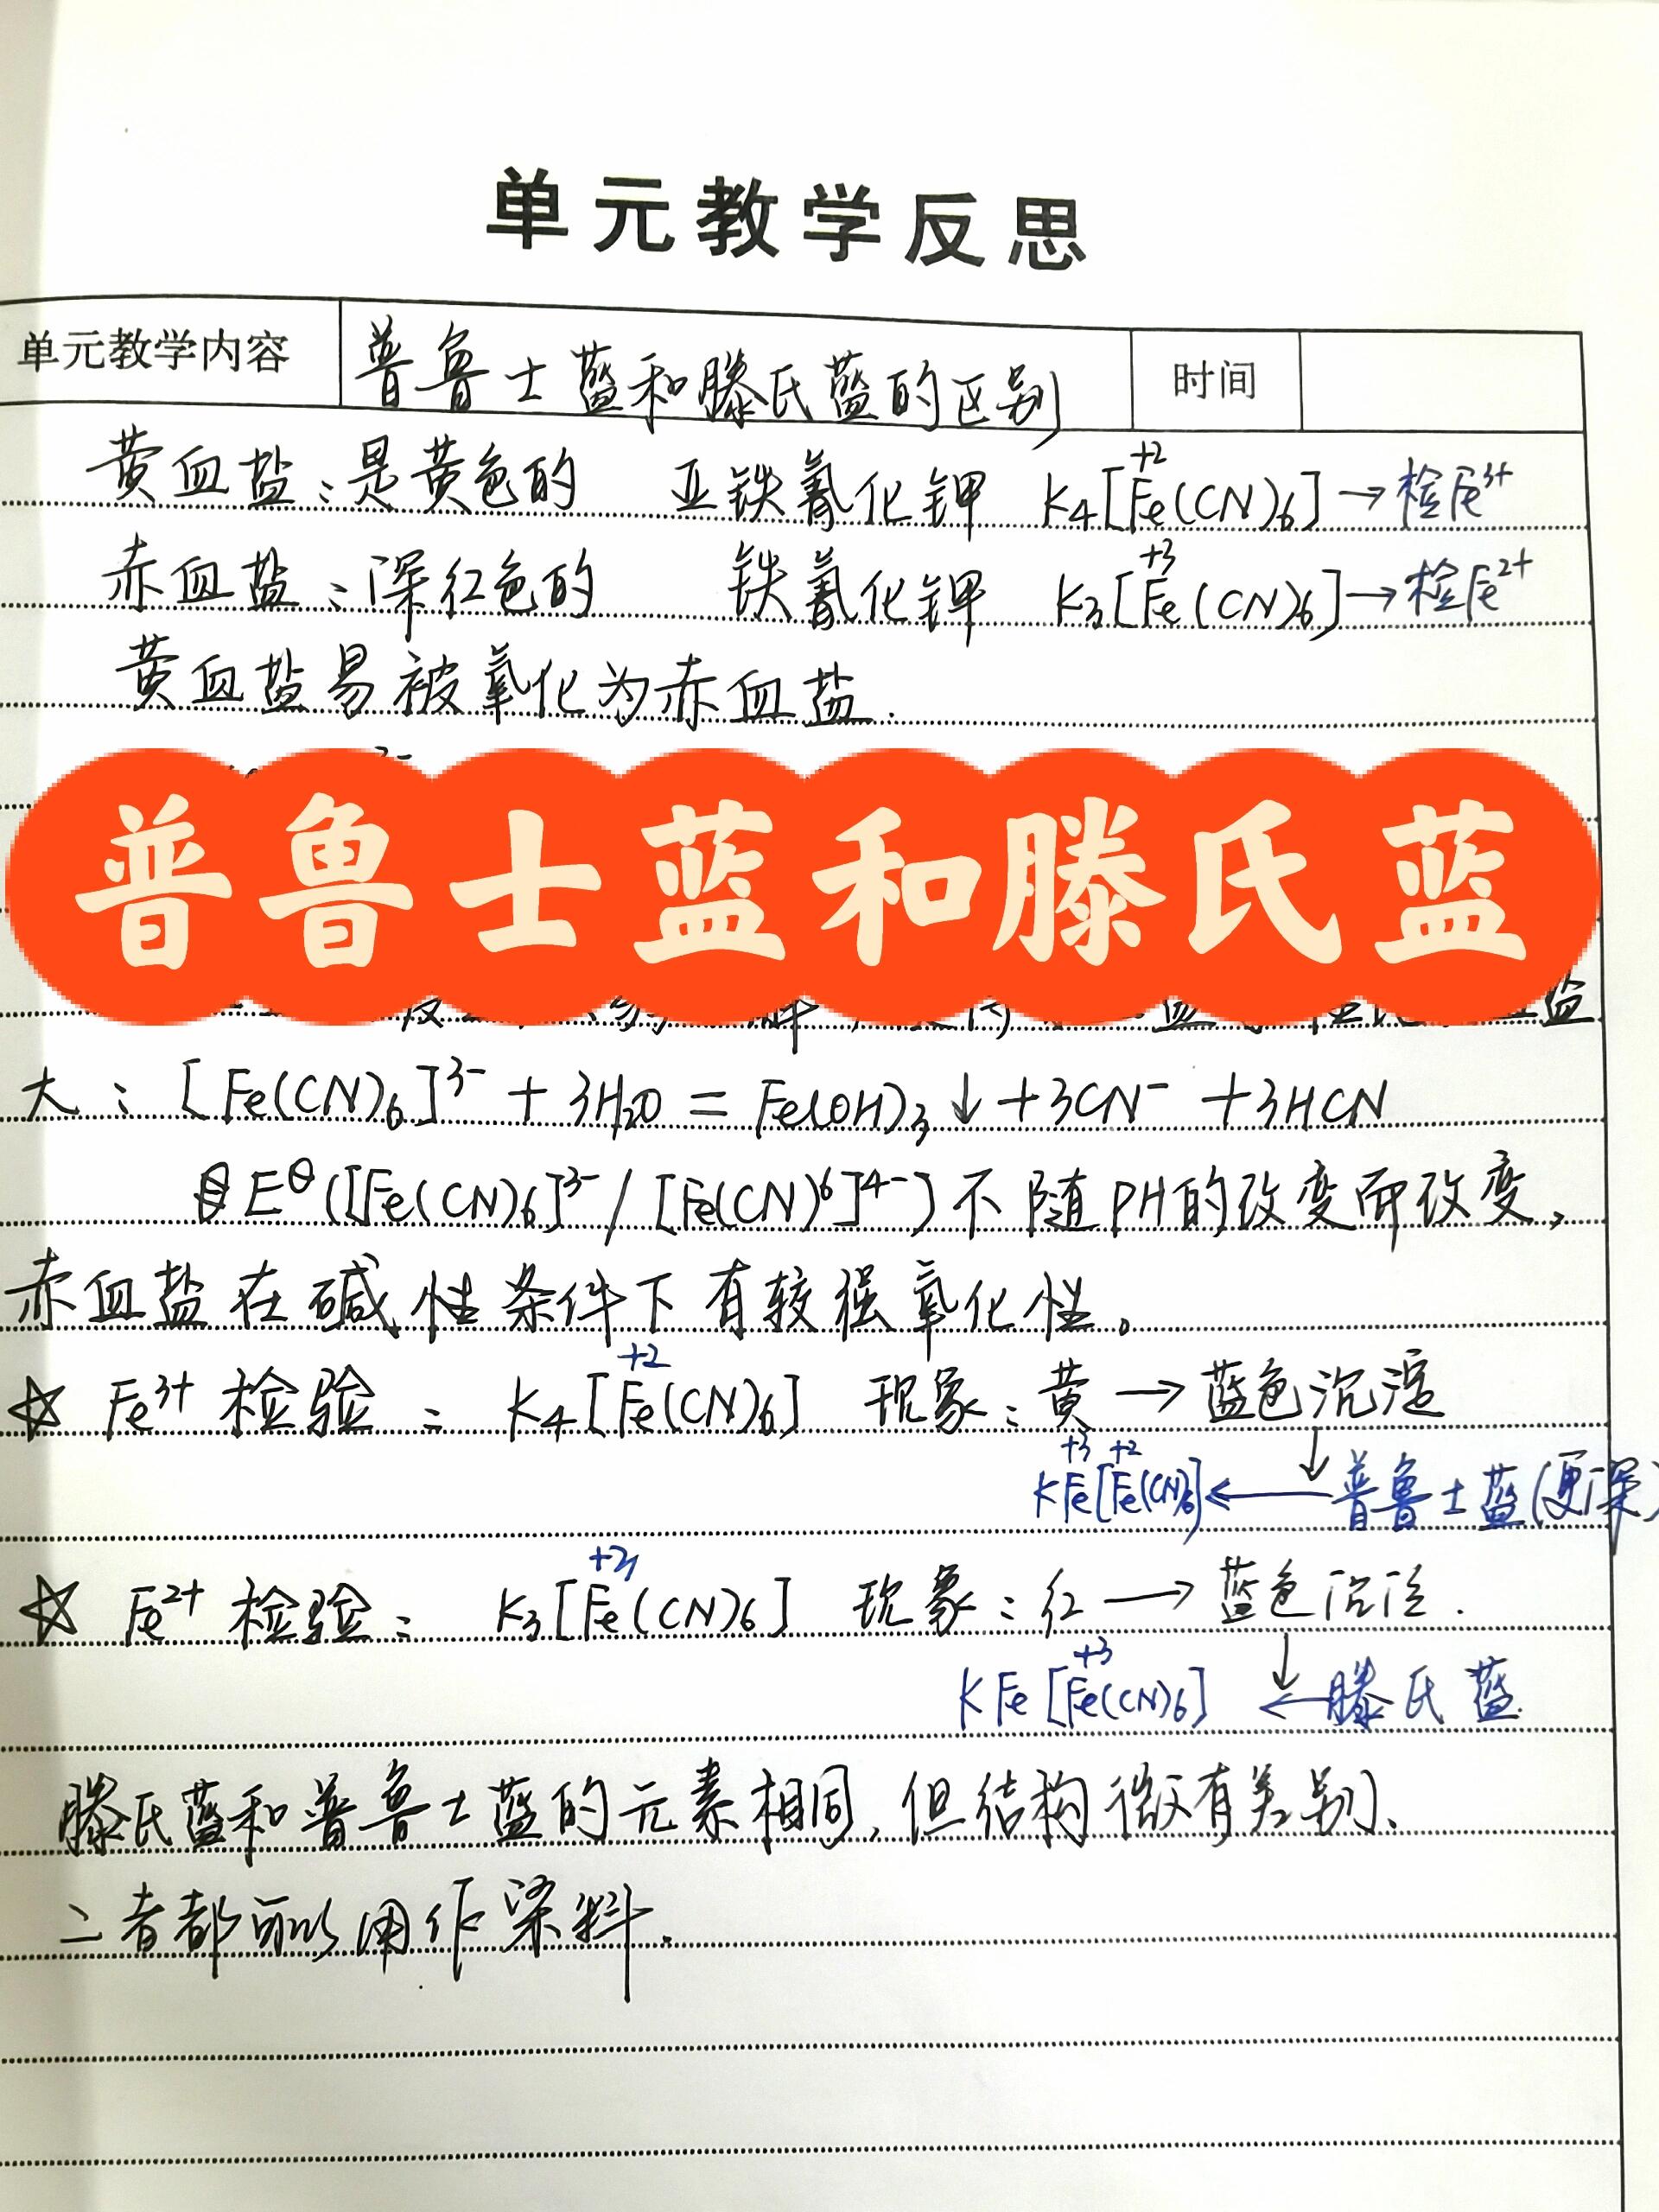 单元教学反思
单元教学内容 普鲁士蓝和滕氏蓝的区别 时间
黄血盐：是黄色的 亚铁氰化钾 K4[Fe(CN)6]→检Fe³⁺
+2
赤血盐：深红色的 铁氰化钾 K3[Fe(CN)6]→检Fe²⁺
+3
黄血盐易被氧化为赤血盐.
普鲁士蓝和滕氏蓝
大：[Fe(CN)6]³⁻ + 3H2O = Fe(OH)3↓+3CN⁻ +3HCN
E^θ([Fe(CN)6]³⁻/[Fe(CN)⁶]⁴⁻) 不随PH的改变而改变，
赤血盐在碱性条件下有较强氧化性。
+2
☆ Fe³⁺检验：K4[Fe(CN)6] 现象：黄→蓝色沉淀
+3 +2
KFe[Fe(CN)6]←普鲁士蓝(更深)
+3
☆ Fe²⁺检验：K3[Fe(CN)6] 现象：红→蓝色沉淀.
+3
KFe[Fe(CN)6] ←滕氏蓝
滕氏蓝和普鲁士蓝的元素相同，但结构微有差别、
二者都可以用作染料.